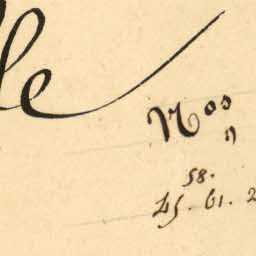 le
Nos
58.
45. 61. 2